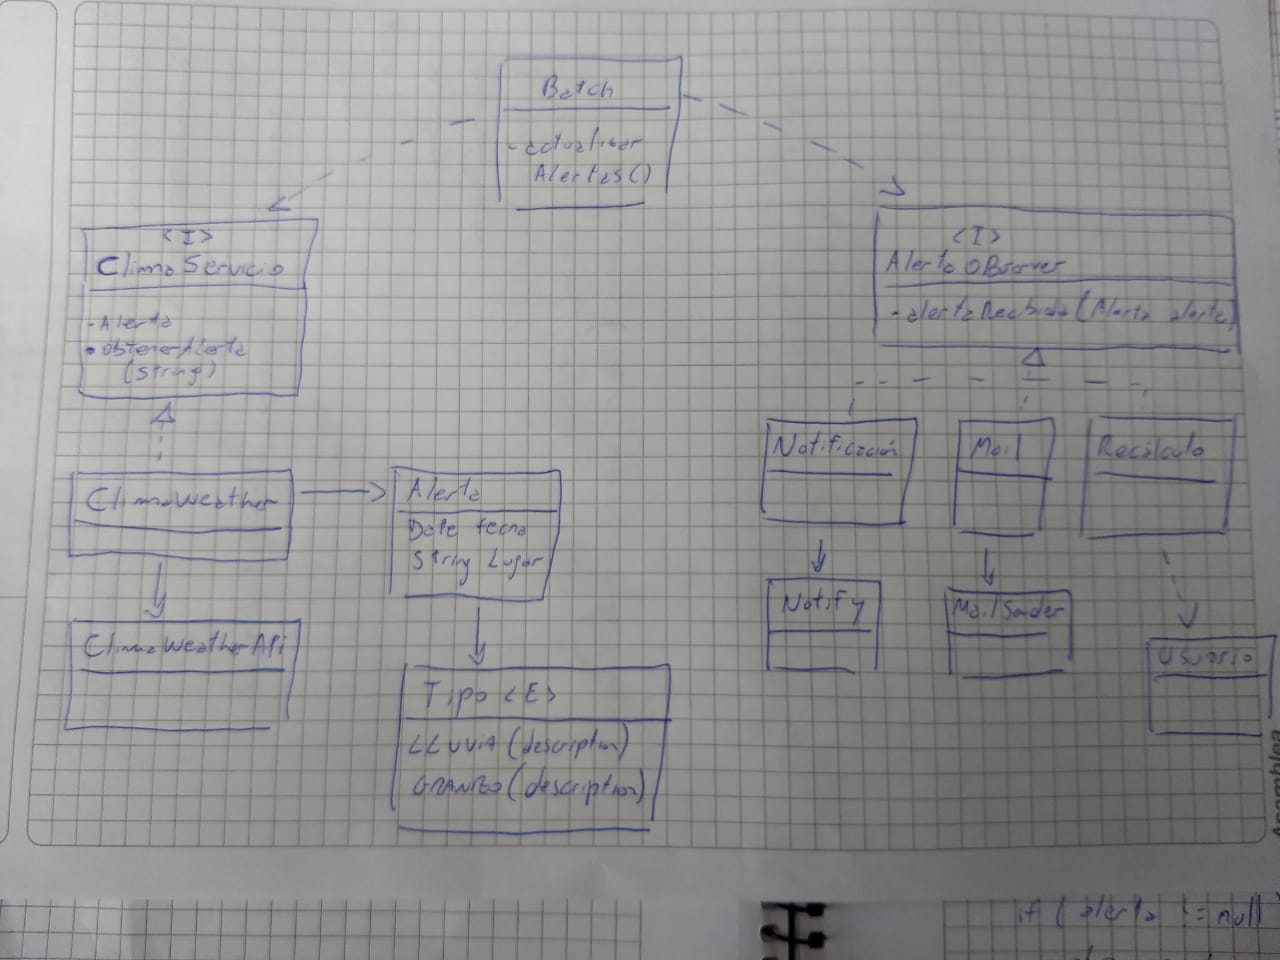 Batch
- actualizar
Alertas()
<I>
Clima Servicio
- Alerta
• obtenerAlerta
(String)
<I>
Alerta OBserver
- alertaRecibida (Alerta alerta)
ClimaWeather
Alerta
Date fecha
String Lugar
ClimaWeatherAPi
Tipo <E>
LLUVIA (description)
GRANIZO (description)
Notificación
Mail
Recálculo
Notify
MailSender
Usuario
if ( alerta != null